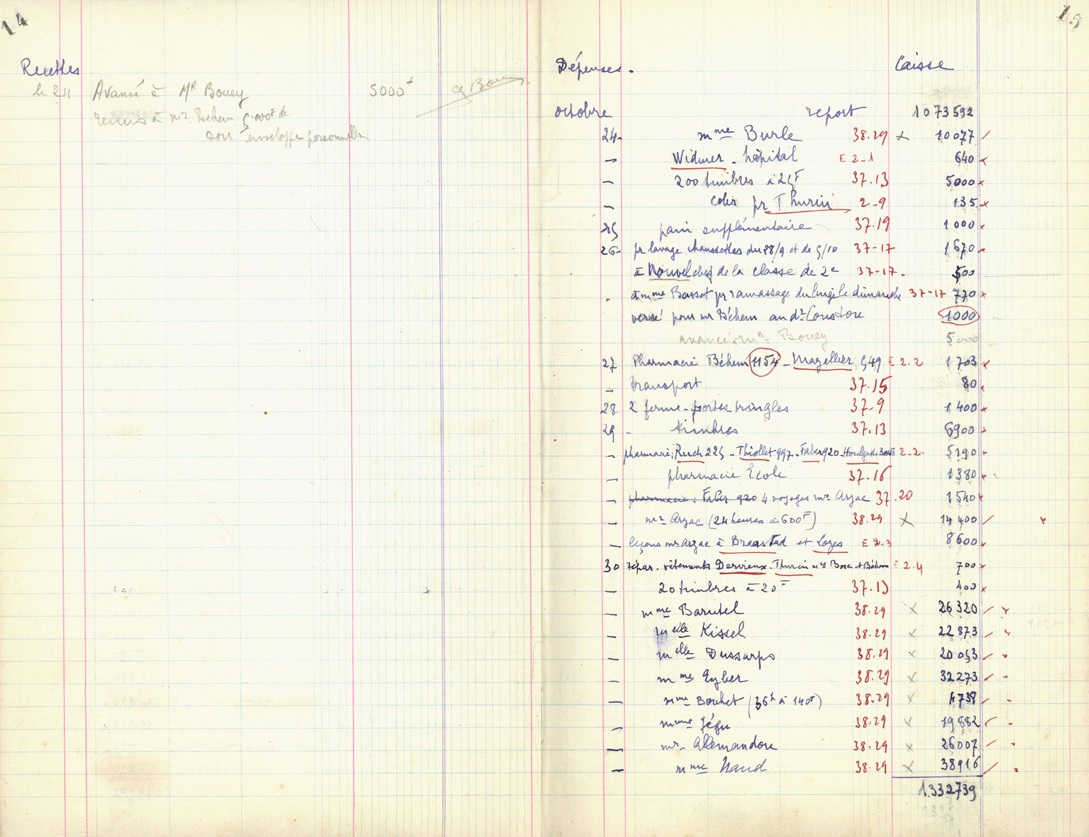 14
Recettes
le 24 Avancé à Mr Bouey 5000 f
remis à mr. Béhem
son enveloppe personnelle
15
Dépenses. Caisse
octobre report 1073592
24- mme Burle 38.29 x 10077
— Widmer - hôpital E 2-1 640
— 200 timbres à 25F 37.13 5000
— colis pr Thurin 2-9 135
25 pain supplémentaire 37.19 1000
26- pr lavage chaussettes du 28/9 et de 5/10 37-17 1670
à Nouvel chef de la classe de 2e 37-17. 500
à mme Bassot pr ramassage du linge le dimanche 37-17 770
versé pour mr Béhem au dr Coustou 1000
avancé à mr Bouey 5000
27 Pharmacie Béhem 1154 - Mazellier 549 E 2.2 1703
— transport 37.15 80
28 2 ferme-portes tringles 37-9 1400
29 - timbres 37.13 6900
— pharmacie: Rusch 225 - Thiollet 997 - Faber 920 - 2-2. 5290
— pharmacie École 37.16 1380
— pharmacie: Faber 920 4 voyages mr Arzac 37.20 1540
— mr Arzac (24 heures à 600F) 38.29 x 14400
— leçons mr Arzac à Braastad et Lozes E 2.3 8600
30 répar. vêtements Dervieux. Thurin mrs Bose et Béhem E 2.4 700
— 20 timbres à 20F 37.13 400
— mme Barutel 38.29 x 26320
— melle Kissel 38.29 x 22873
— melle Dussarps 38.29 x 20053
— mme Eyber 38.29 x 32273
— mme Bouhet (36h à 140F) 38.29 x 4738
— mme Jégu 38.29 x 19882
— mr. Allemandou 38.29 x 26007
— mme Naud 38.29 x 38916
1.332739